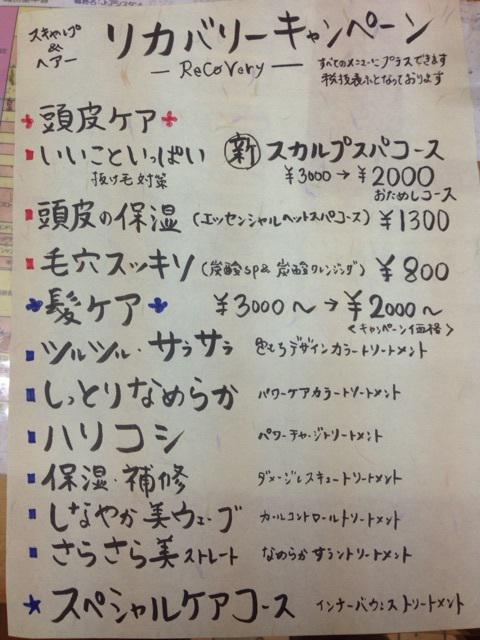 スキャルプ
&
ヘアー
リカバリーキャンペーン
— Recovery —
すべてのメニューにプラスできます
税抜表示となっております
頭皮ケア
いいこといっぱい 新 スカルプスパコース
抜け毛対策 ¥3000→¥2000
おためしコース
頭皮の保湿 (エッセンシャルヘッドスパコース) ¥1300
毛穴スッキリ (炭酸sp& 炭酸クレンジング) ¥800
髪ケア ¥3000〜→¥2000〜
<キャンペーン価格>
ツルツル・サラサラ デザインカラートリートメント
しっとりなめらか パワーケアカラートリートメント
ハリコシ パワーチャージトリートメント
保湿・補修 ダメージレスキュートリートメント
しなやか美ウェーブ カールコントロールトリートメント
さらさら美ストレート なめらかトリートメント
スペシャルケアコース インナーバウンストリートメント